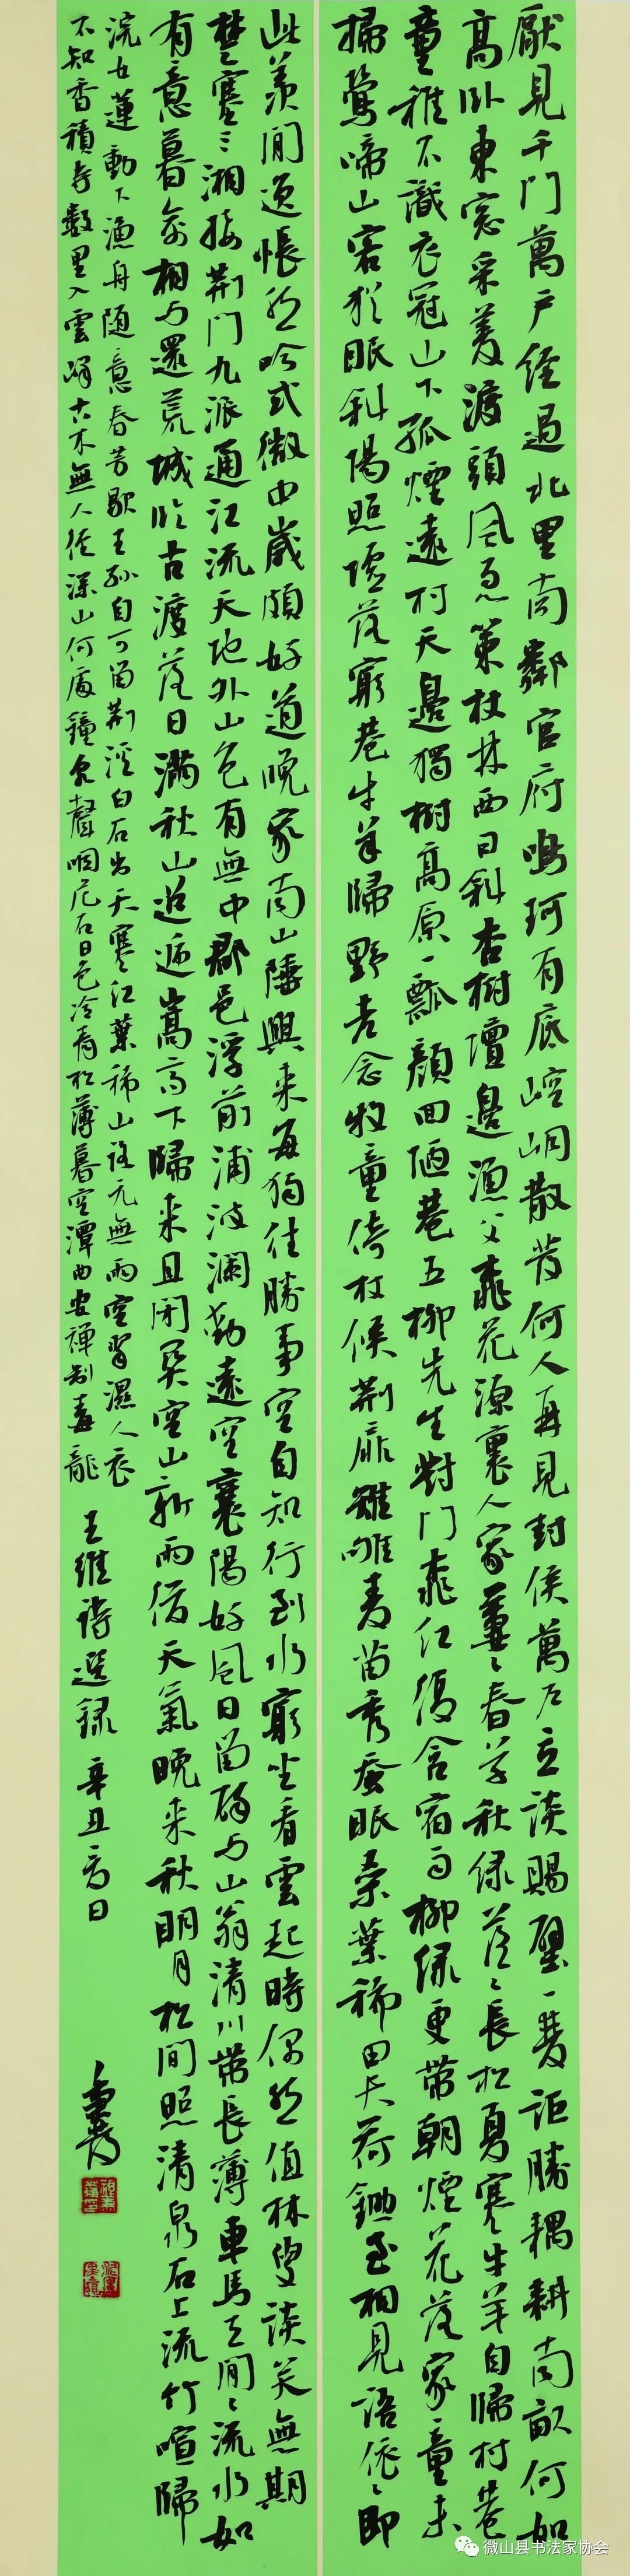 厭見千門萬戶經過北里南鄰官府鳴珂有底崆峒散髮何人再見封侯萬戶立談賜璧一雙詎勝耦耕南畝何如
高臥東窓采菱渡頭風急策杖林西日斜杏樹壇邊漁父桃花源裏人家萋〻春草秋綠落〻長松夏寒牛羊自歸村巷
童稚不識衣冠山下孤煙遠村天邊獨樹高原一瓢顏回陋巷五柳先生對門桃紅復含宿雨柳綠更帶朝煙花落家童未
掃鶯啼山客猶眠斜陽照墟落窮巷牛羊歸野老念牧童倚杖候荊扉雉雊麥苗秀蚕眠桑葉稀田夫荷鋤至相見語依〻即
此羨閒逸悵然吟式微中歲頗好道晚家南山陲興來每獨往勝事空自知行到水窮坐看雲起時偶然值林叟談笑無期
楚塞三湘接荊門九派通江流天地外山色有無中郡邑浮前浦波瀾動遠空襄陽好風日留醉与山翁清川帶長薄車馬去閒〻流水如
有意暮禽相与還荒城臨古渡落日滿秋山迢遞嵩高下歸來且閉關空山新雨後天氣晚來秋明月松間照清泉石上流竹喧歸
浣女蓮動下漁舟随意春芳歇王孫自可留荊溪白石出天寒紅葉稀山路元無雨空翠濕人衣
不知香積寺數里入雲峰古木無人徑深山何處鐘泉聲咽危石日色冷青松薄暮空潭曲安禪制毒龍
王維詩選録 辛丑夏日
微山县书法家协会